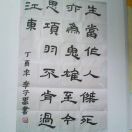 生當作人傑死
亦為鬼雄至今
思項羽不肯過
江東
丁酉